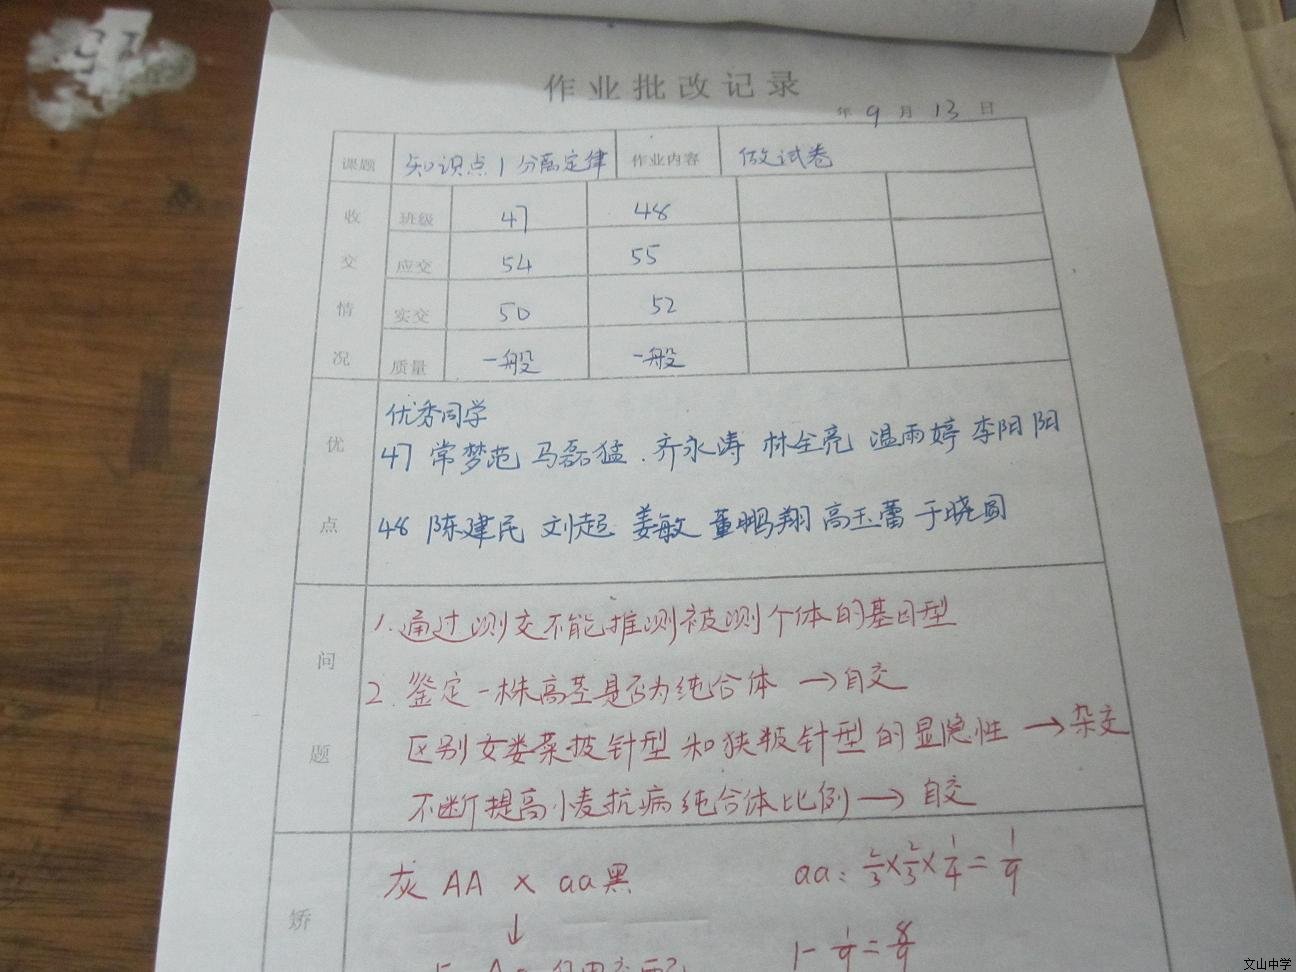 作业批改记录
年 9 月 13 日
课题 知识点1分离定律 作业内容 做试卷
收交情况
班级 47 48
应交 54 55
实交 50 52
质量 一般 一般
优点
优秀同学
47 常梦范 马磊猛 . 齐永涛 林全亮 温雨婷 李阳阳
48 陈建民 刘超 姜敏 董鹏翔 高玉蕾 于晓圆
问题
1. 通过测交不能推测被测个体的基因型
2. 鉴定一株高茎是否为纯合体 → 自交
区别女娄菜披针型和狭披针型的显隐性 → 杂交
不断提高小麦抗病纯合体比例 → 自交
矫
灰 AA × aa黑 aa: 2/3×2/3×1/4=1/9
↓
1-1/9=8/9
文山中学